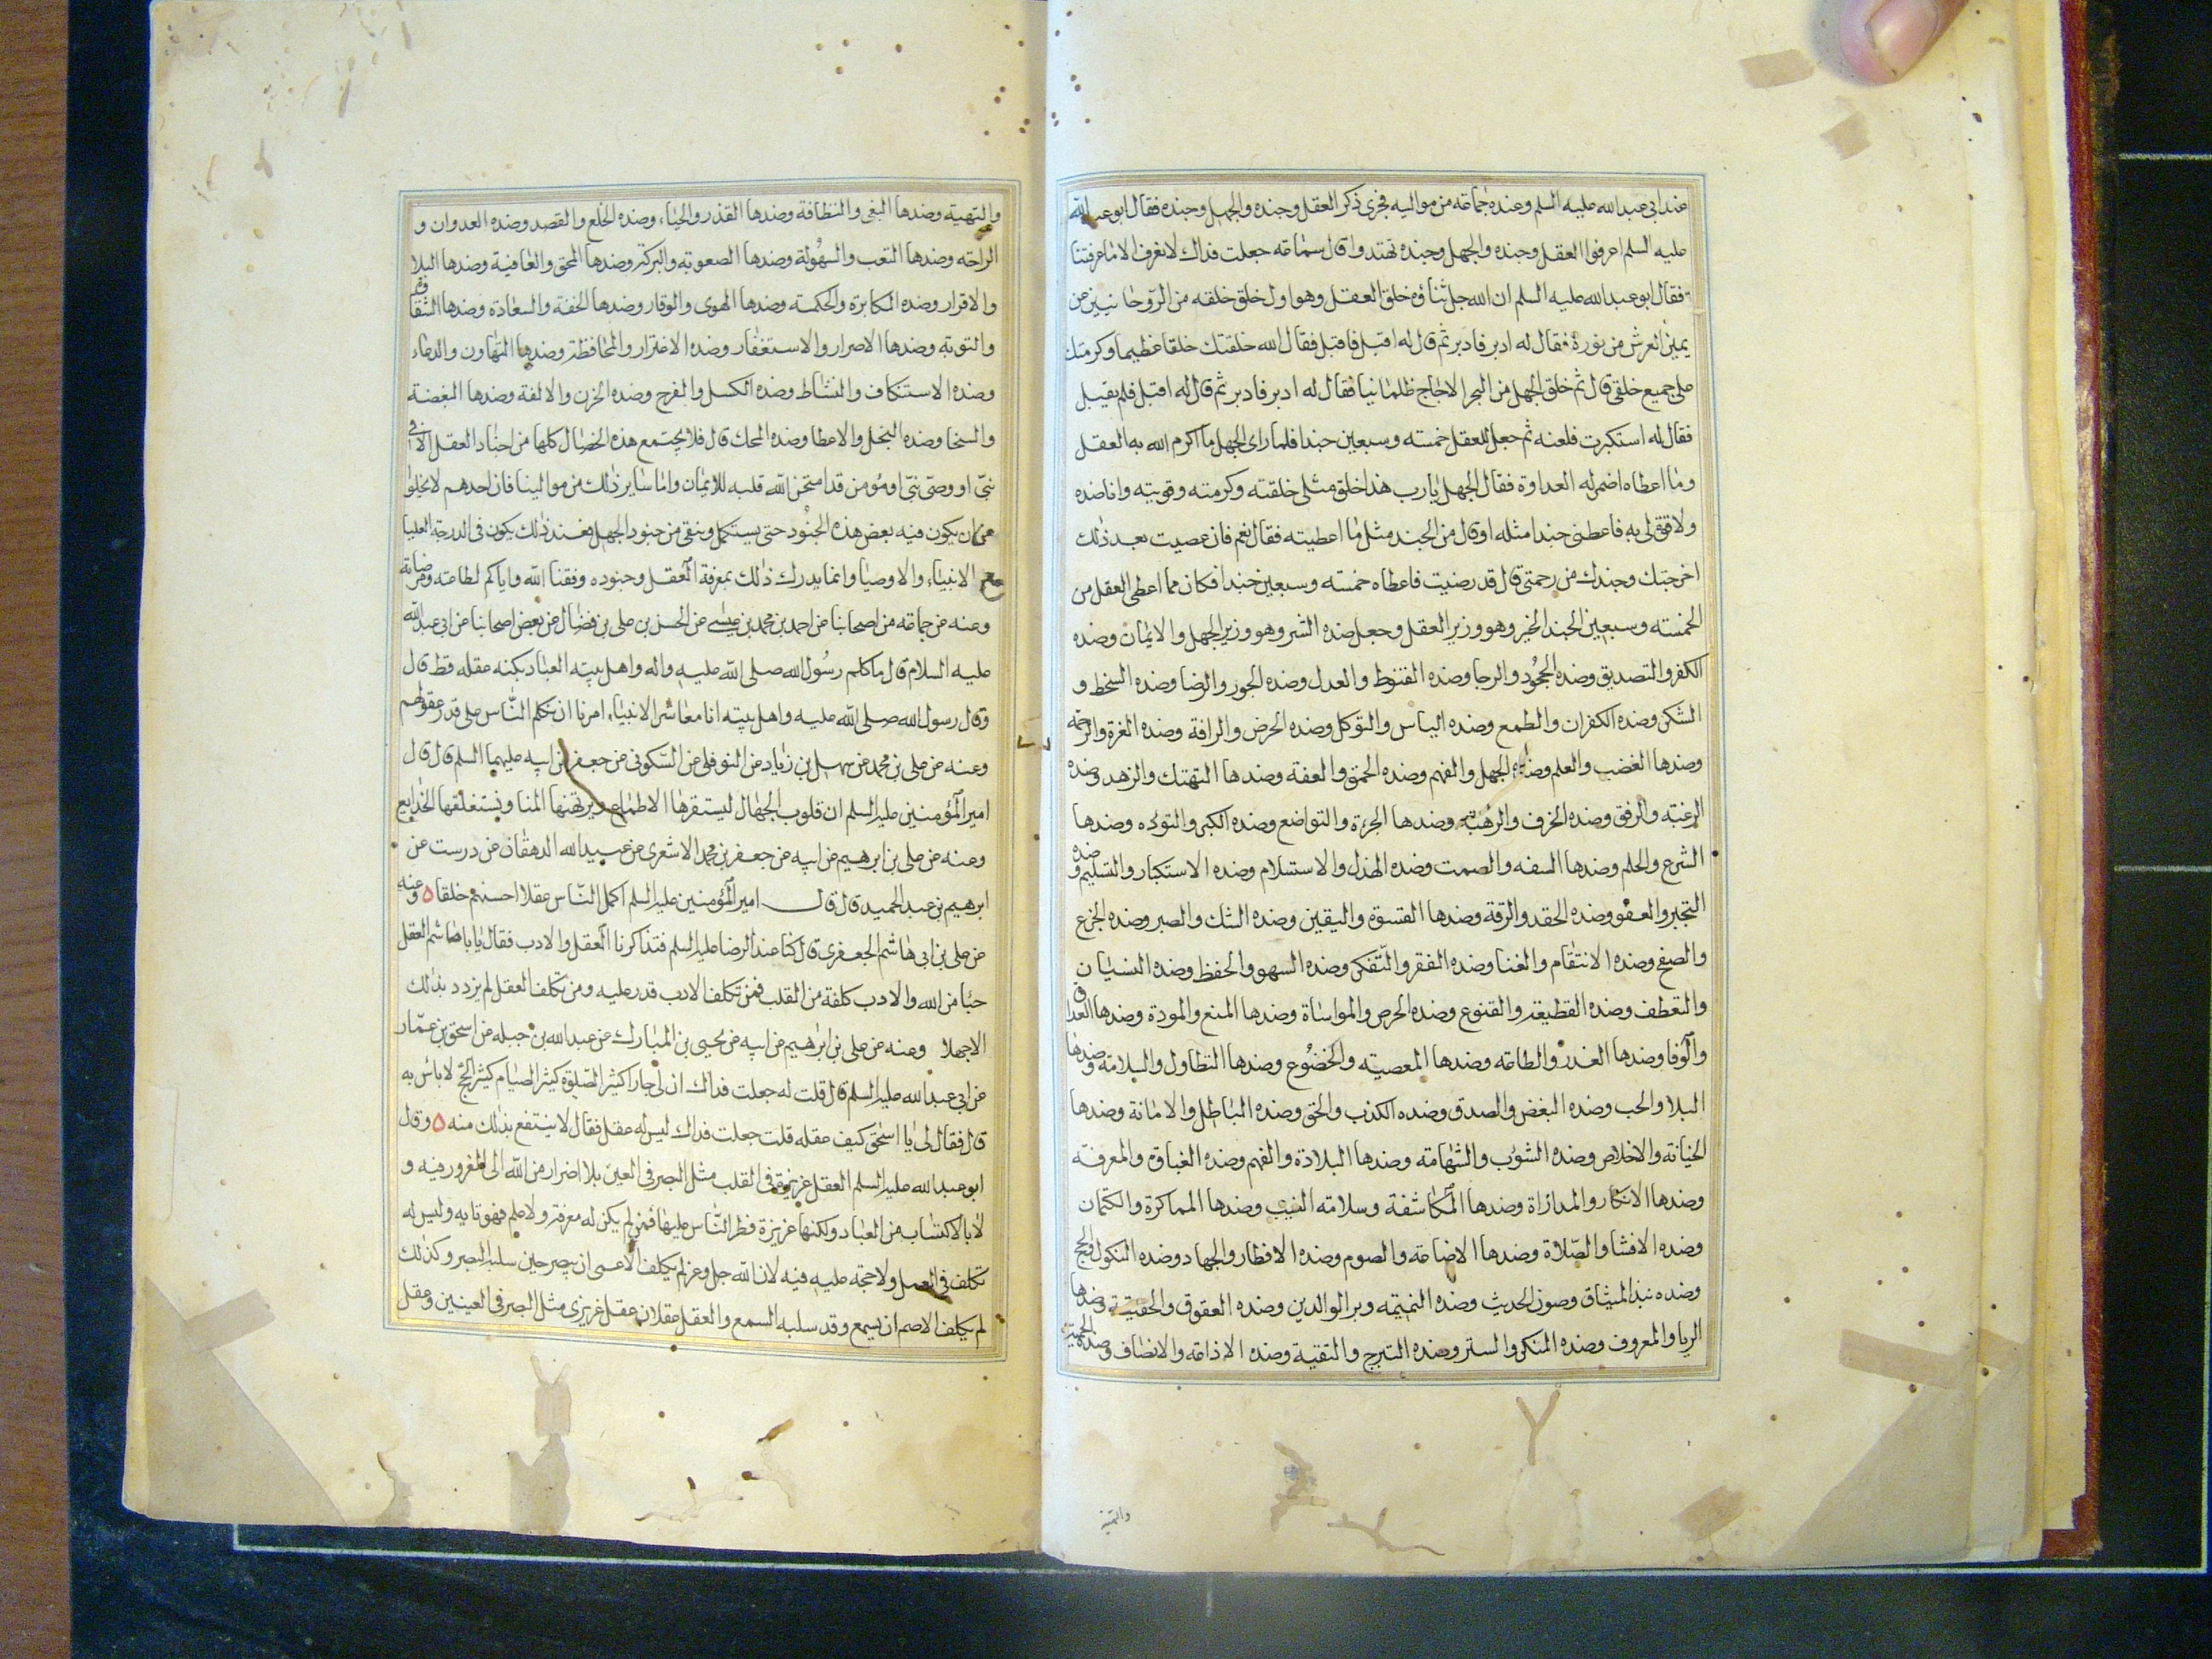 عند ابى عبد الله عليه السلم وعنده جماعة من مواليه فجرى ذكر العقل وجنده والجهل وجنده فقال ابو عبد الله
عليه السلم اعرفوا العقل وجنده والجهل وجنده تهتدوا قال سماعة جعلت فداك لا نعرف الا ما عرفتنا
فقال ابو عبد الله عليه السلم ان الله جل ثناؤه خلق العقل وهو اول خلق خلقه من الروحانيين عن
يمين العرش من نوره فقال له ادبر فادبر ثم قال له اقبل فاقبل فقال الله خلقتك خلقا عظيما وكرمتك
على جميع خلقى قال ثم خلق الجهل من البحر الاجاج ظلمانيا فقال له ادبر فادبر ثم قال له اقبل فلم يقبل
فقال له استكبرت فلعنه ثم جعل للعقل خمسته وسبعين جندا فلما راى الجهل ما اكرم الله به العقل
وما اعطاه اضمر له العداوة فقال الجهل يا رب هذا خلق مثلى خلقته وكرمته وقويته وانا ضده
ولا قوة لى به فاعطنى جندا مثله او قال من الجند مثل ما اعطيته فقال نعم فان عصيت بعد ذلك
اخرجتك وجندك من رحمتى قال قد رضيت فاعطاه خمسته وسبعين جندا فكان مما اعطى العقل من
الخمسته وسبعين الجند الخير وهو وزير العقل وجعل ضده الشر وهو وزير الجهل والايمان وضده
الكفر والتصديق وضده الجحود والرجا وضده القنوط والعدل وضده الجور والرضا وضده السخط و
الشكر وضده الكفران والطمع وضده الياس والتوكل وضده الحرص والرافة وضده الغرة والرحمة
وضدها الغضب والعلم وضده الجهل والفهم وضده الحمق والعفة وضدها التهتك والزهد وضده
الرغبة والرفق وضده الخرف والرهبة وضدها الجرءة والتواضع وضده الكبر والتوده وضدها
الشرع والحلم وضدها السفه والصمت وضده الهذل والاستسلام وضده الاستكبار والتسليم وضده
التجبر والعفو وضده الحقد والرقة وضدها القسوة واليقين وضده الشك والصبر وضده الجزع
والصفح وضده الانتقام والغنا وضده الفقر والتفكر وضده السهو والحفظ وضده النسيان
والتعطف وضده القطيعة والقنوع وضده الحرص والمواساة وضدها المنع والمودة وضدها العداوة
والوفا وضدها الغدر والطاعة وضدها المعصيته والخضوع وضدها التطاول والسلامة وضدها
البلا والحب وضده البغض والصدق وضده الكذب والحق وضده الباطل والامانة وضدها
الخيانة والاخلاص وضده الشوب والشهامة وضدها البلادة والفهم وضده الغباوة والمعرفة
وضدها الانكار والمداراة وضدها المكاشفة وسلامته الغيب وضدها المماكرة والكتمان
وضده الافشا والصلاة وضدها الاضاعة والصوم وضده الافطار والجهاد وضده النكول والحج
وضده نبذ الميثاق وصون الحديث وضده النميمة وبر الوالدين وضده العقوق والحقيقة وضدها
الريا والمعروف وضده المنكر والستر وضده التبرج والتقية وضده الاذاعة والانصاف وضده الحمية
والتهية
والتهية وضدها البغى والنظافة وضدها القذر والحياء وضده الخلع والقصد وضده العدوان و
الراحة وضدها التعب والسهولة وضدها الصعوبة والبركة وضدها المحق والعافية وضدها البلا
والاقرار وضده المكابرة والحكمة وضدها الهوى والوقار وضدها الخفة والسعادة وضدها الشقاوة
والتوبة وضدها الاصرار والاستغفار وضده الاغترار والمحافظة وضدها التهاون والدعاء
وضده الاستنكاف والنشاط وضده الكسل والفرح وضده الحزن والالفة وضدها البغضة
والسخا وضده البخل والاعطا وضده المحك قال فلا يجتمع هذه الخصال كلها من اجناد العقل الا فى
نبى او وصى نبى او مؤمن قد امتحن الله قلبه للايمان واما ساير ذلك من موالينا فان احدهم لا يخلوا
من ان يكون فيه بعض هذه الجنود حتى يستكمل وينقى من جنود الجهل فعند ذلك يكون فى الدرجة العليا
مع الانبياء والاوصيا وانما يدرك ذلك بمعرفة العقل وجنوده وفقنا الله واياكم لطاعته ومرضاته
وعنه عن جماعة من اصحابنا عن احمد بن محمد بن عيسى عن الحسن بن على بن فضال عن بعض اصحابنا عن ابى عبد الله
عليه السلام قال ما كلم رسول الله صلى الله عليه واله واهل بيته العباد بكنه عقله قط قال
وقال رسول الله صلى الله عليه واهل بيته انا معاشر الانبياء امرنا ان نكلم الناس على قدر عقولهم
وعنه عن على بن محمد عن سهل بن زياد عن النوفلى عن السكونى عن جعفر عن ابيه عليهما السلم قال قال
امير المؤمنين عليه السلم ان قلوب الجهال ليستفزها الاطماع ويرتهنها المنا ويستغلقها الخدايع
وعنه عن على بن ابرهيم عن ابيه عن جعفر بن محمد الاشعرى عن عبيد الله الدهقان عن درست عن
ابرهيم بن عبد الحميد قال قال امير المؤمنين عليه السلم اكمل الناس عقلا احسنهم خلقا ٥ وعنه
عن على بن ابى هاشم الجعفرى قال كنا عند الرضا عليه السلم فتذاكرنا العقل والادب فقال يا باهاشم العقل
حبا من الله والادب كلفة من القلب فمن تكلف الادب قدر عليه ومن تكلف العقل لم يزدد بذلك
الا جهلا وعنه عن على بن ابرهيم عن ابيه عن يحيى بن المبارك عن عبد الله بن جبله عن اسحق بن عمار
عن ابى عبد الله عليه السلم قال قلت له جعلت فداك ان لى جارا كثير الصلوة كثير الصيام كثير الحج لا باس به
قال فقال لى يا اسحق كيف عقله قلت جعلت فداك ليس له عقل فقال لا ينتفع بذلك منه ٥ وقال
ابو عبد الله عليه السلم العقل غريزة فى القلب مثل البصر فى العين بلا اضرار من الله الى المغرور فيه و
لا بالاكتساب من العباد ولكنها غريزة فطر الناس عليها فمن لم يكن له معرفة ولا علم فهو تايه وليس له
تكلف فى العمل ولا حجة عليه فيه لان الله جل وعز لم يكلف الاعمى ان يبصر حين سلبه البصر وكذلك
لم يكلف الاصم ان يسمع وقد سلبه السمع والعقل عقلان عقل غريزى مثل البصر فى العينين وعقل